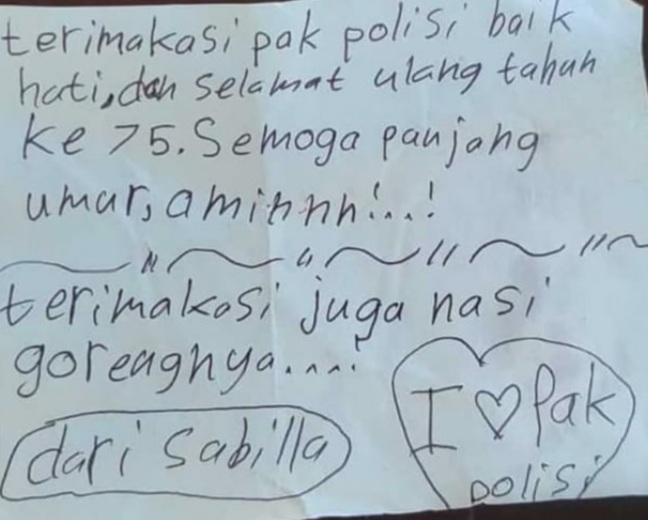 terimakasi pak polisi baik
hati, dan selamat ulang tahun
ke 75. Semoga panjang
umur, aminnn!..!
terimakasi juga nasi
goreagnya....!
dari Sabilla
I ♡ Pak
polisi